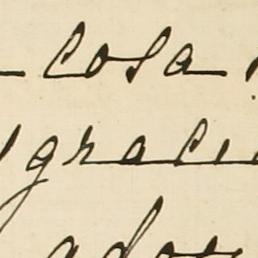 cosa
graci
ados